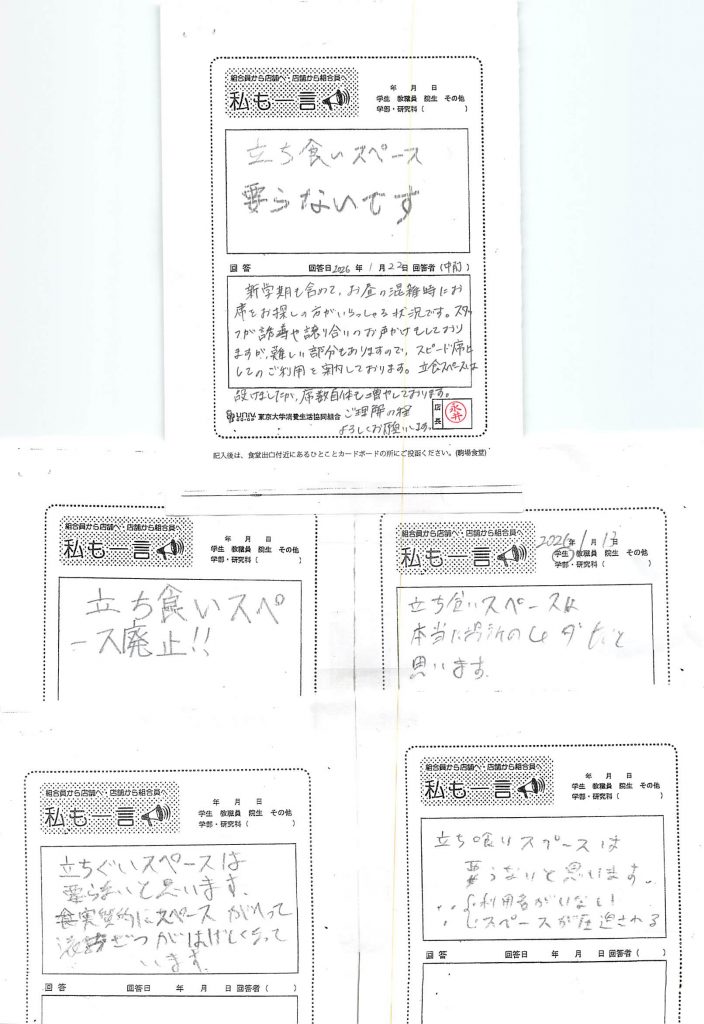 組合員から店舗へ・店舗から組合員へ
私も一言
年 月 日
学生 教職員 院生 その他
学部・研究科( )
立ち食いスペース
要らないです
回答 回答日2026年1月22日 回答者(中前)
新学期も含めて、お昼の混雑時にお
席をお探しの方がいらっしゃる状況です。スタッ
フが誘導や譲り合いのお声がけもしており
ますが、難しい部分もありますので、スピード席と
してのご利用を案内しております。立食スペースは
設けましたが、席数自体も増やしております。
ご理解の程
よろしくお願いします。
東京大学消費生活協同組合
店長
永井
記入後は、食堂出口付近にあるひとことカードボードの所にご投函ください。(駒場食堂)
組合員から店舗へ・店舗から組合員へ
私も一言
年 月 日
学生 教職員 院生 その他
学部・研究科( )
立ち食いスペ
ース廃止!!
組合員から店舗へ・店舗から組合員へ
私も一言
2026年1月13日
学生 教職員 院生 その他
学部・研究科( )
立ち食いスペースは
本当に場所のムダだと
思います.
組合員から店舗へ・店舗から組合員へ
私も一言
年 月 日
学生 教職員 院生 その他
学部・研究科( )
立ちぐいスペースは
要らないと思います.
実質的にスペースがへって
ざつがはげしくなって
います.
回答 回答日 年 月 日 回答者( )
組合員から店舗へ・店舗から組合員へ
私も一言
年 月 日
学生 教職員 院生 その他
学部・研究科( )
立ち喰いスペースは
要らないと思います.
利用者がいない
スペースが圧迫される
回答 回答日 年 月 日 回答者( )